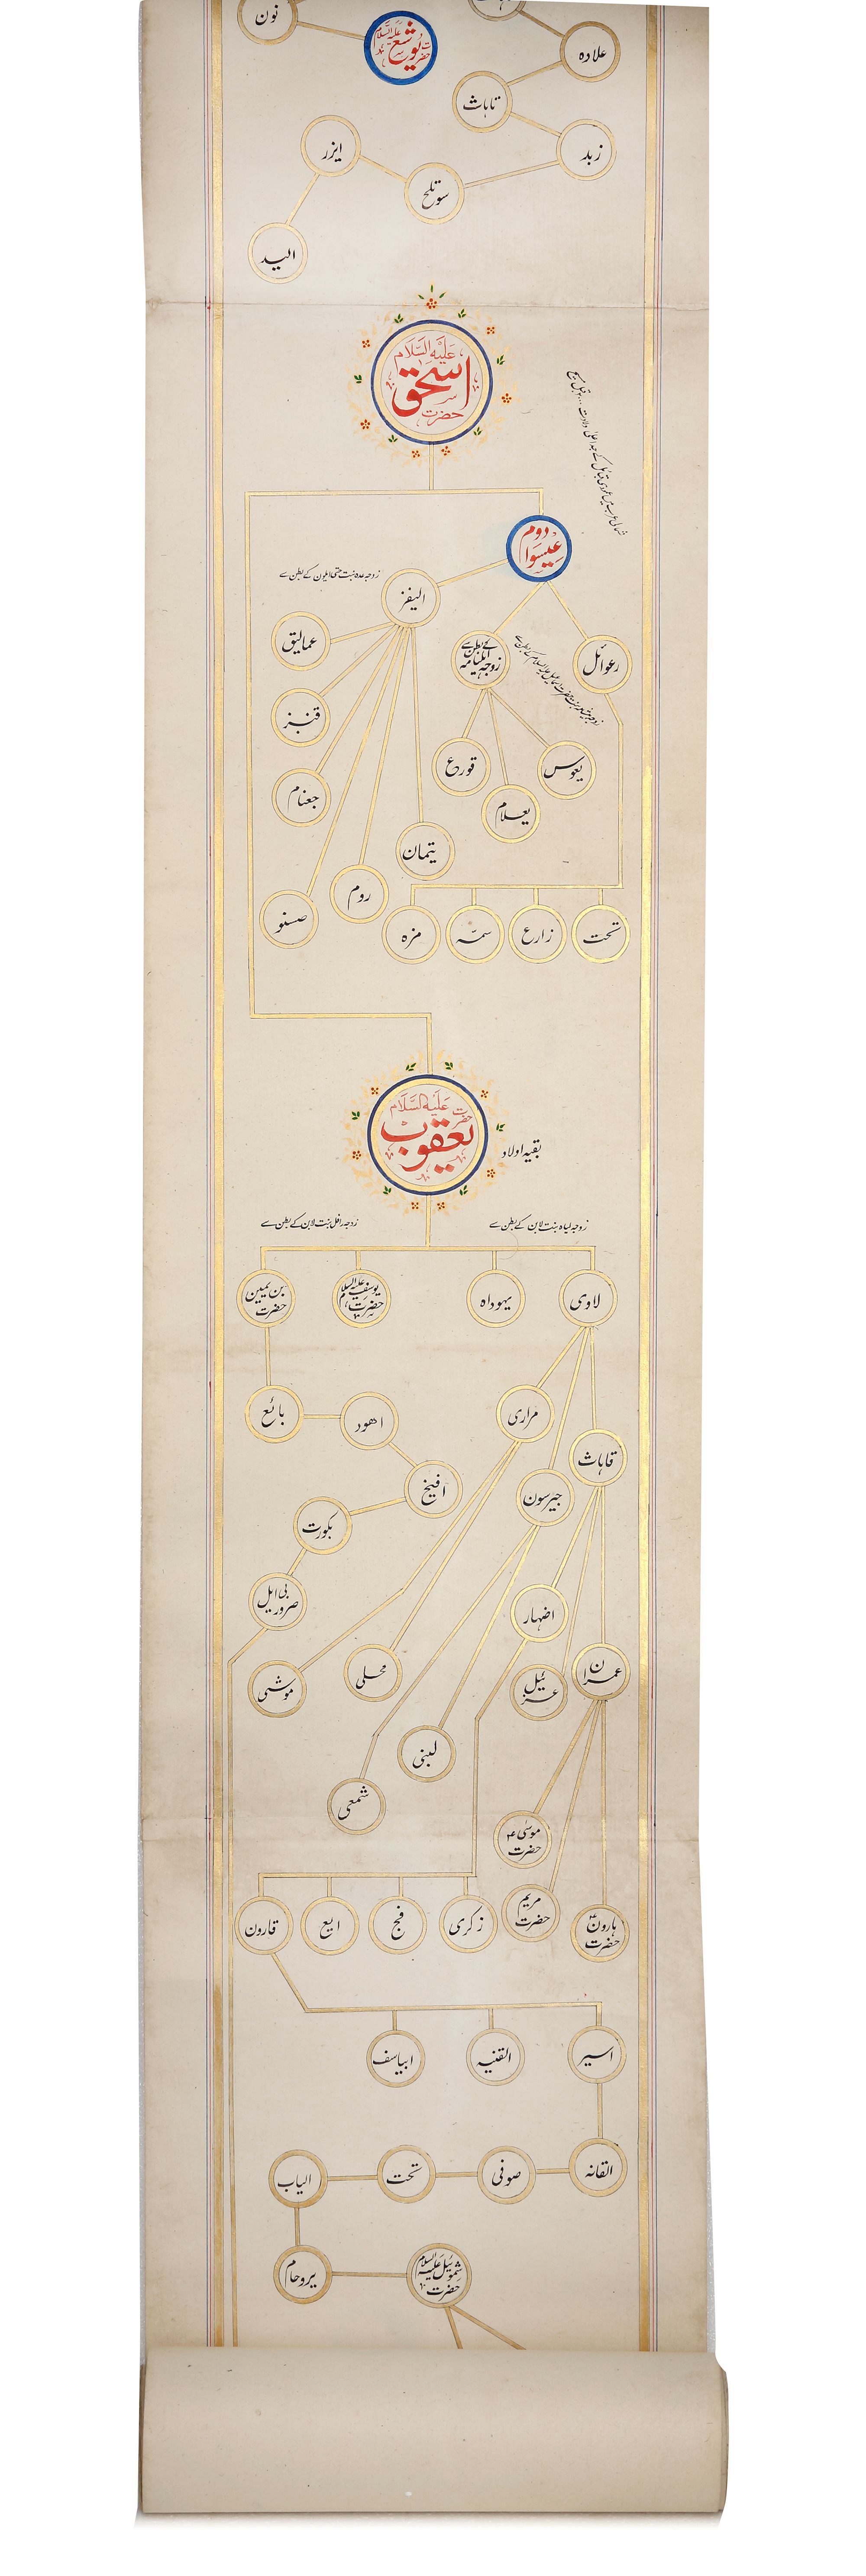 نون
حضرت یوشع علیہ السلام
علاده
تاہاث
زبد
سوتلح
ایزر
الید
حضرت اسحٰق علیہ السلام
عیسوا دوم
زوجہ عدہ بنت حتی ایلون کے بطن سے
الیفز
عمالیق
قنز
جعنام
صنو
روم
یتمان
رعوائل
قورع
یعلام
یعوس
مزه
سمّہ
زارع
تحت
حضرت یعقوب علیہ السلام
بقیہ اولاد
زوجہ لیاہ بنت لابن کے بطن سے
زوجہ راخل بنت لابن کے بطن سے
لاوی
یہوداه
حضرت یوسف علیہ السلام
حضرت بن یمین
بائع
اهود
افیخ
بکورت
ضرور بی ایل
مراری
جیرسون
قاہاث
اضہار
عزئیل
عمران
محلی
موشی
لبنی
شمعی
حضرت موسیٰ ؑ
حضرت مریم
حضرت ہارونؑ
زکری
فج
ایع
قارون
اسیر
القنیہ
ابیاسف
القانہ
صوفی
تحت
الیاب
یروحام
حضرت شموئیل علیہ السلام